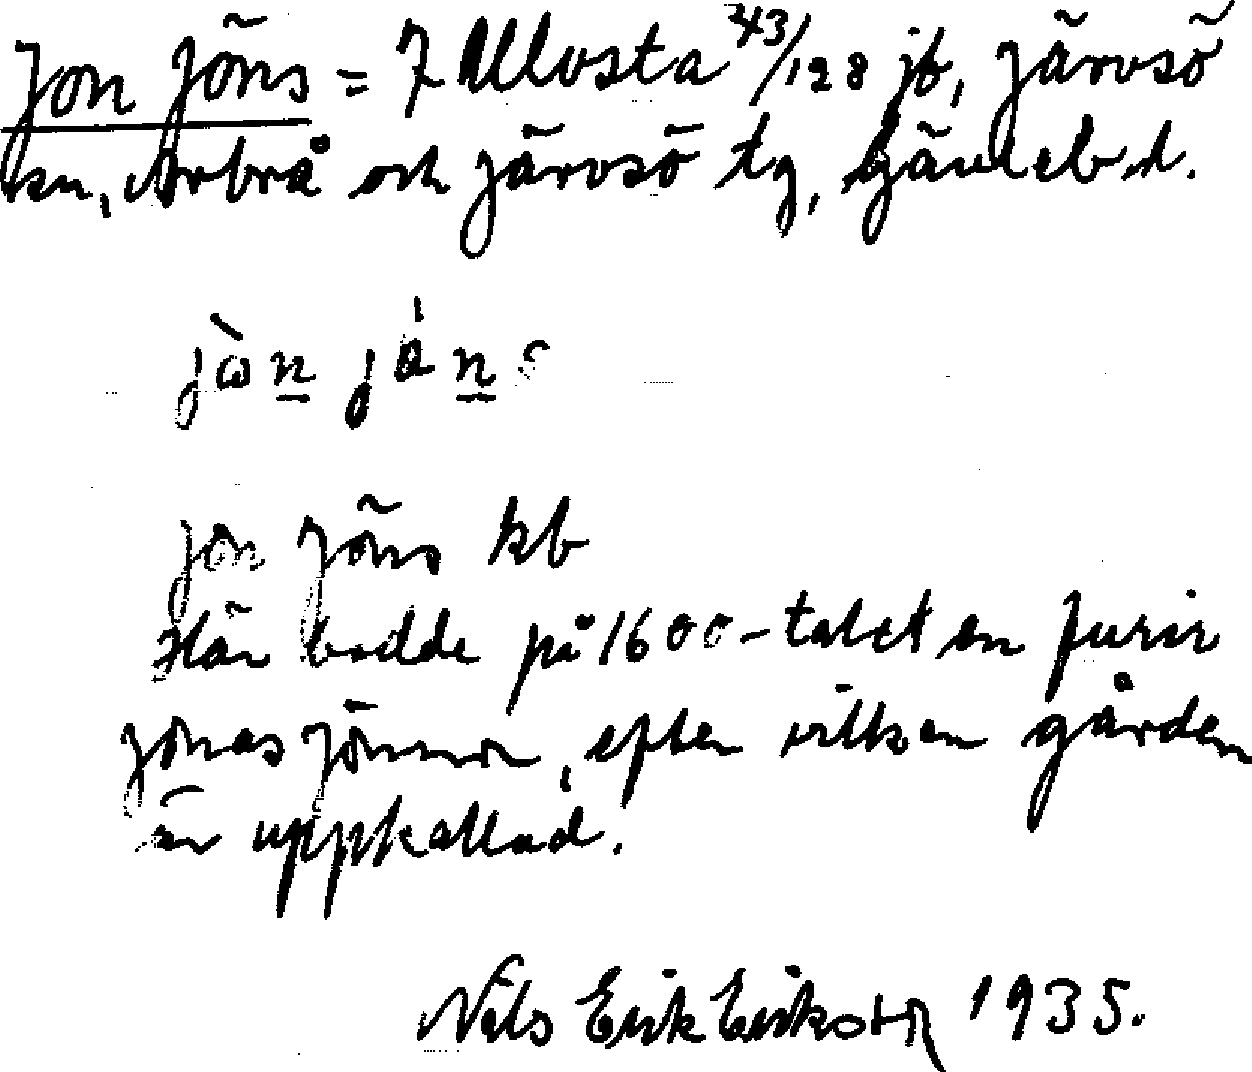 Jon Jöns = 7 Ullvsta 43/128 jb, Järvsö
sn, Arbrå och Järvsö tg, Gävleb.l.
jòn jöns
Jon Jöns kb
Här bodde på 1600-talet en furir
Jonas Jönsson, efter vilken gården
är uppkallad.
Nils Erik Eriksson 1935.